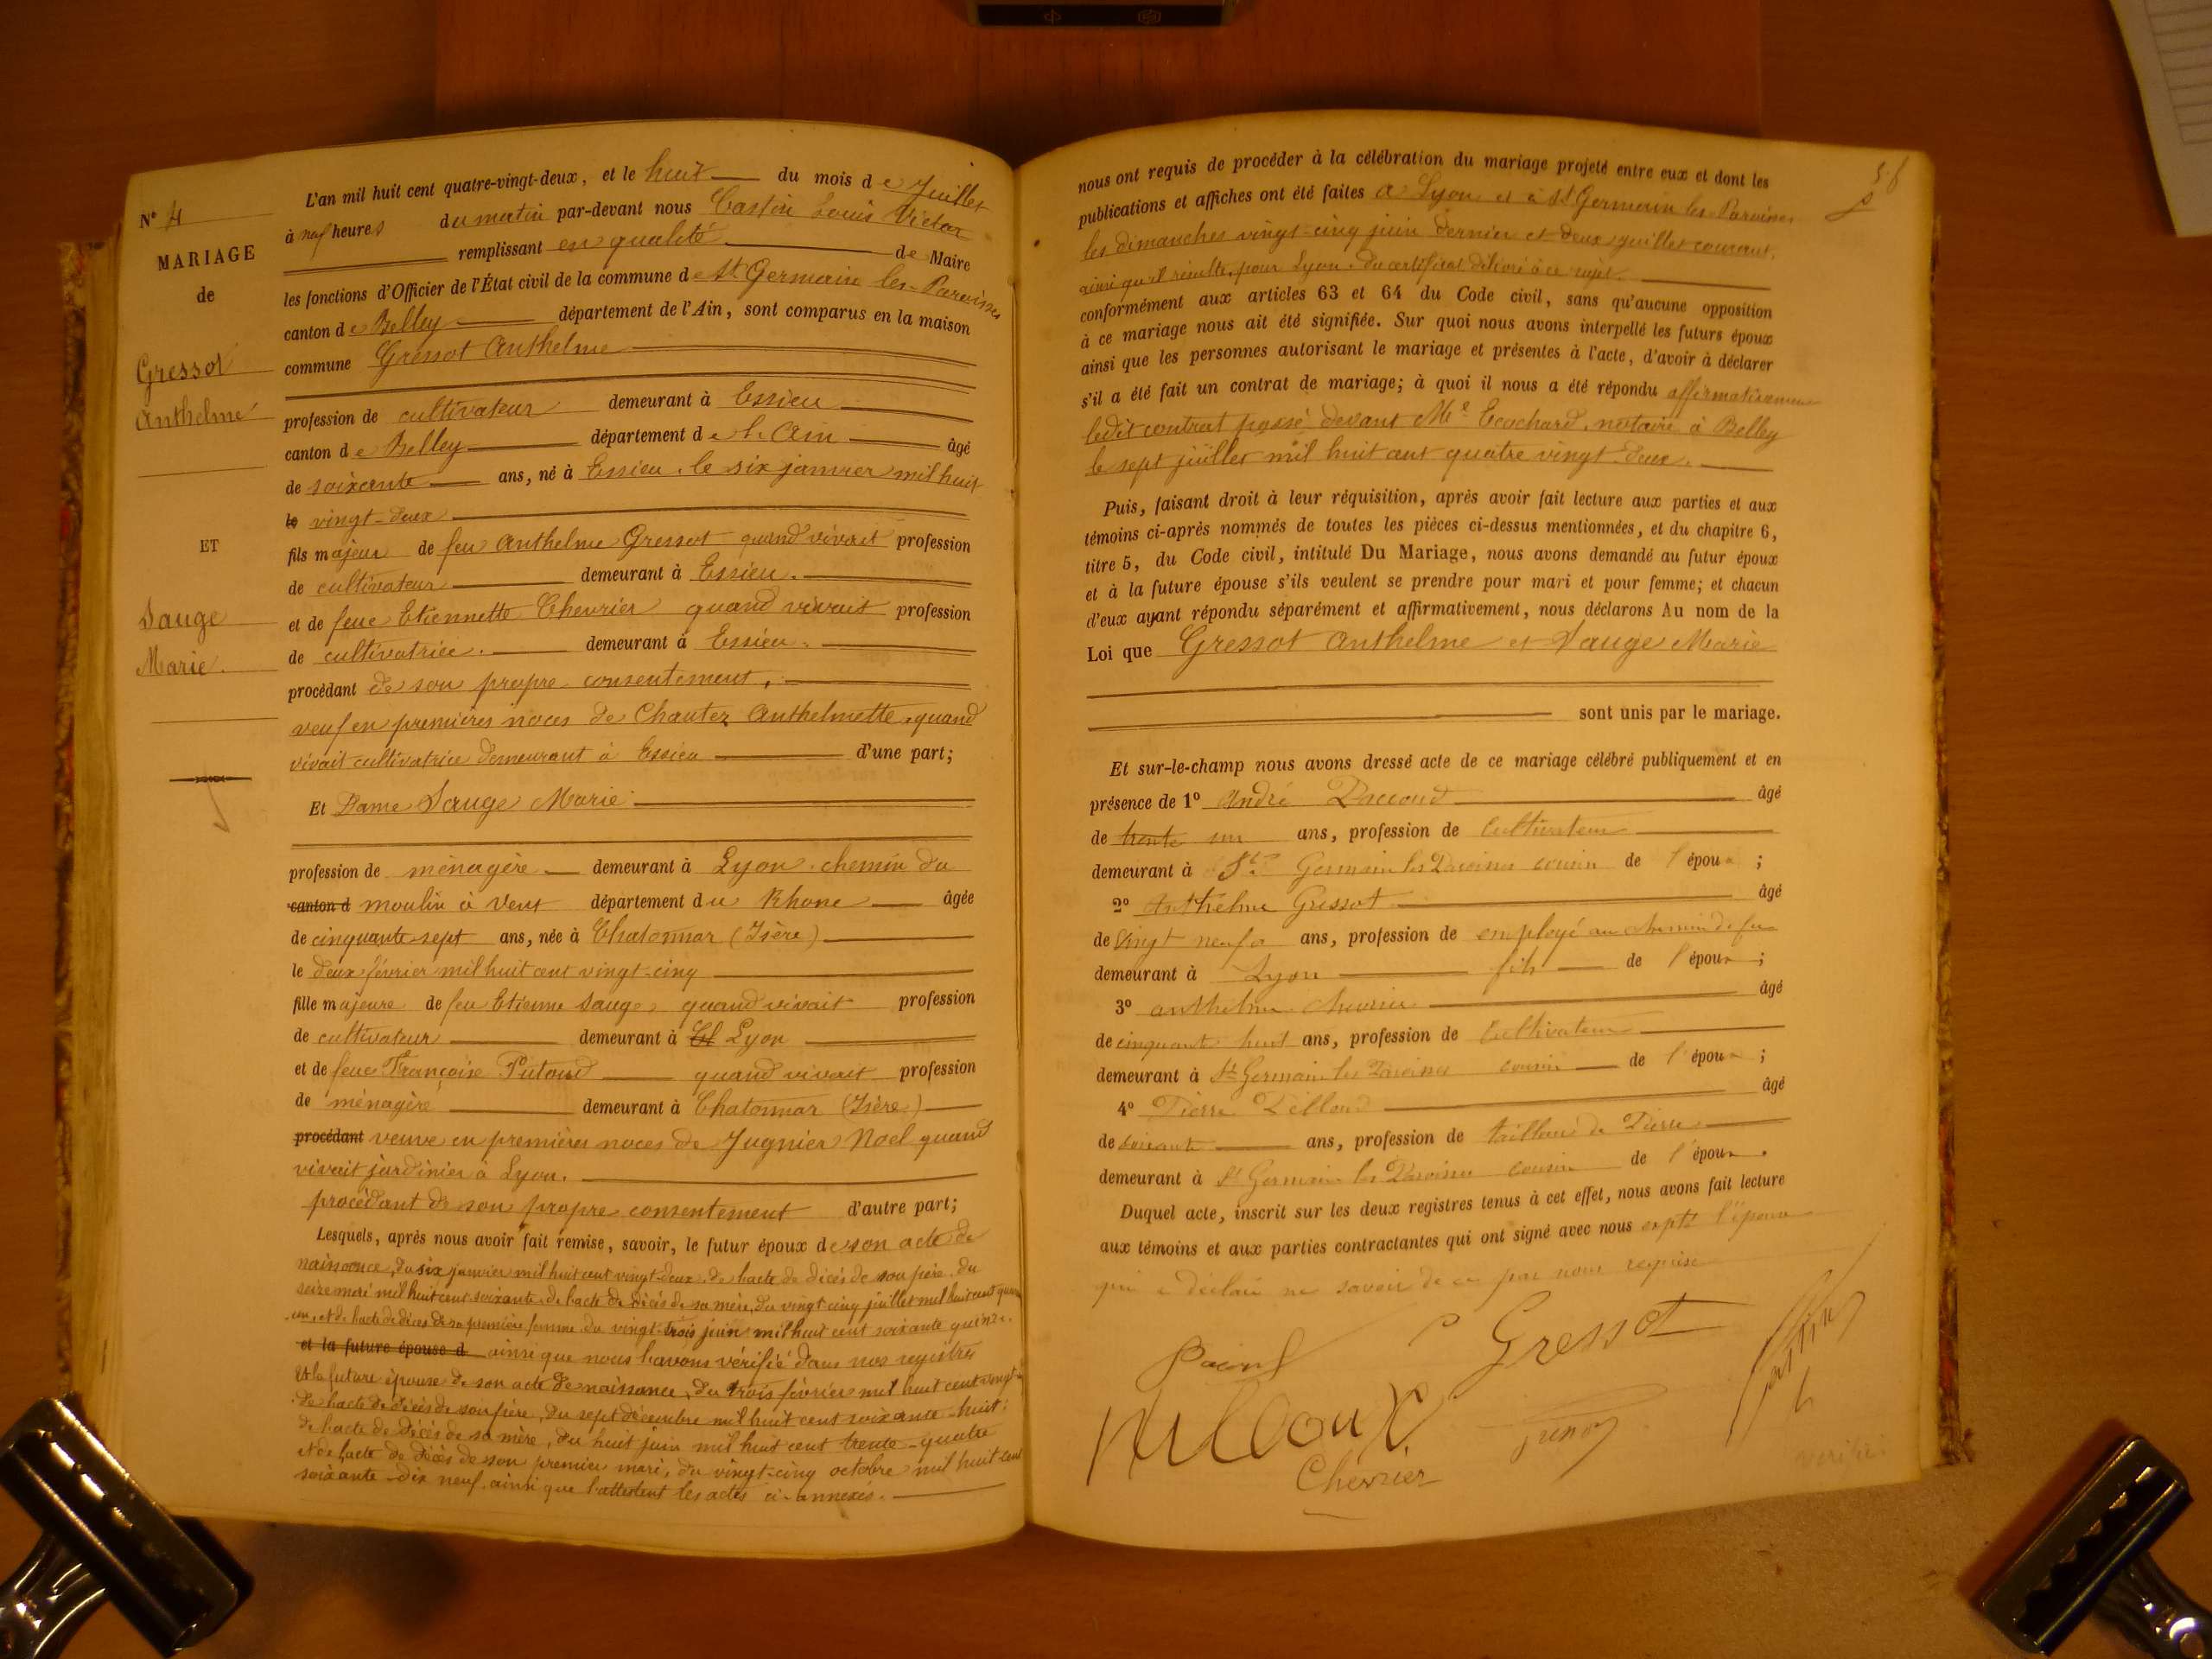 L'an mil huit cent quatre-vingt-deux, et le huit du mois de Juillet
N° 4
à neuf heures du matin par-devant nous Castin Louis Victor
MARIAGE
remplissant en qualité de Maire
de
les fonctions d'Officier de l'État civil de la commune de St Germain les Paroisses
canton de Belley département de l'Ain, sont comparus en la maison
Gressot
commune Gressot Anthelme
Anthelme
profession de cultivateur demeurant à Essieu
canton de Belley département de l'Ain âgé
de soixante ans, né à Essieu, le six janvier mil huit
le vingt-deux
ET
fils majeur de feu Anthelme Gressot quand vivait profession
de cultivateur demeurant à Essieu.
Sauge
et de feue Etiennette Chevrier quand vivait profession
Marie.
de cultivatrice. demeurant à Essieu.
procédant de son propre consentement,
veuf en premières noces de Chauter Anthelmette, quand
vivait cultivatrice demeurant à Essieu d'une part;
Et Dame Sauge Marie
profession de ménagère demeurant à Lyon, chemin du
canton d moulin à Vent département du Rhone âgée
de cinquante-sept ans, née à Chatonnar (Isère)
le deux février mil huit cent vingt-cinq
fille majeure de feu Etienne Sauge, quand vivait profession
de cultivateur demeurant à Ch Lyon
et de feue Françoise Putoud quand vivait profession
de ménagère demeurant à Chatonnar (Isère)
procédant veuve en premières noces de Jugnier Noël quand
vivait jardinier à Lyon.
procédant de son propre consentement d'autre part;
Lesquels, après nous avoir fait remise, savoir, le futur époux de son acte de
naissance, du six janvier mil huit cent vingt-deux, de l'acte de décès de son père, du
seize mai mil huit cent soixante, de l'acte de décès de sa mère, du vingt cinq juillet mil huit cent
un, et de l'acte de décès de sa première femme du vingt-trois juin mil huit cent soixante quinze.
et la future épouse d ainsi que nous l'avons vérifié dans nos registres
et la future épouse de son acte de naissance, du trois février mil huit cent vingt
de l'acte de décès de son père, du sept décembre mil huit cent soixante-huit;
de l'acte de décès de sa mère, du huit juin mil huit cent trente-quatre
et de l'acte de décès de son premier mari, du vingt-cinq octobre mil huit cent
soixante-dix neuf, ainsi que l'attestent les actes ci-annexés.
56
nous ont requis de procéder à la célébration du mariage projeté entre eux et dont les
publications et affiches ont été faites à Lyon et à St Germain les Paroisses
les dimanches vingt-cinq juin dernier et deux juillet courant,
ainsi qu'il résulte, pour Lyon, du certificat délivré à ce sujet.
conformément aux articles 63 et 64 du Code civil, sans qu'aucune opposition
à ce mariage nous ait été signifiée. Sur quoi nous avons interpellé les futurs époux
ainsi que les personnes autorisant le mariage et présentes à l'acte, d'avoir à déclarer
s'il a été fait un contrat de mariage; à quoi il nous a été répondu affirmativement
ledit contrat passé devant Me Ecochard, notaire à Belley
le sept juillet mil huit cent quatre vingt-deux.
Puis, faisant droit à leur réquisition, après avoir fait lecture aux parties et aux
témoins ci-après nommés de toutes les pièces ci-dessus mentionnées, et du chapitre 6,
titre 5, du Code civil, intitulé Du Mariage, nous avons demandé au futur époux
et à la future épouse s'ils veulent se prendre pour mari et pour femme; et chacun
d'eux ayant répondu séparément et affirmativement, nous déclarons Au nom de la
Loi que Gressot Anthelme et Sauge Marie
sont unis par le mariage.
Et sur-le-champ nous avons dressé acte de ce mariage célébré publiquement et en
présence de 1° André Paccoud âgé
de trente un ans, profession de cultivateur
demeurant à St Germain les Paroisses cousin de l'époux ;
2° Anthelme Gressot âgé
de vingt neuf ans, profession de employé au chemin de fer
demeurant à Lyon fils de l'époux ;
3° Anthelme Chevrier âgé
de cinquante huit ans, profession de Cultivateur
demeurant à St Germain les Paroisses cousin de l'époux ;
4° Pierre Pilloud âgé
de soixante ans, profession de tailleur de Pierre
demeurant à St Germain les Paroisses cousin de l'époux.
Duquel acte, inscrit sur les deux registres tenus à cet effet, nous avons fait lecture
aux témoins et aux parties contractantes qui ont signé avec nous excepté l'épouse
qui a déclaré ne savoir de ce par nous requise
Gressot
Chevrier
vérifié